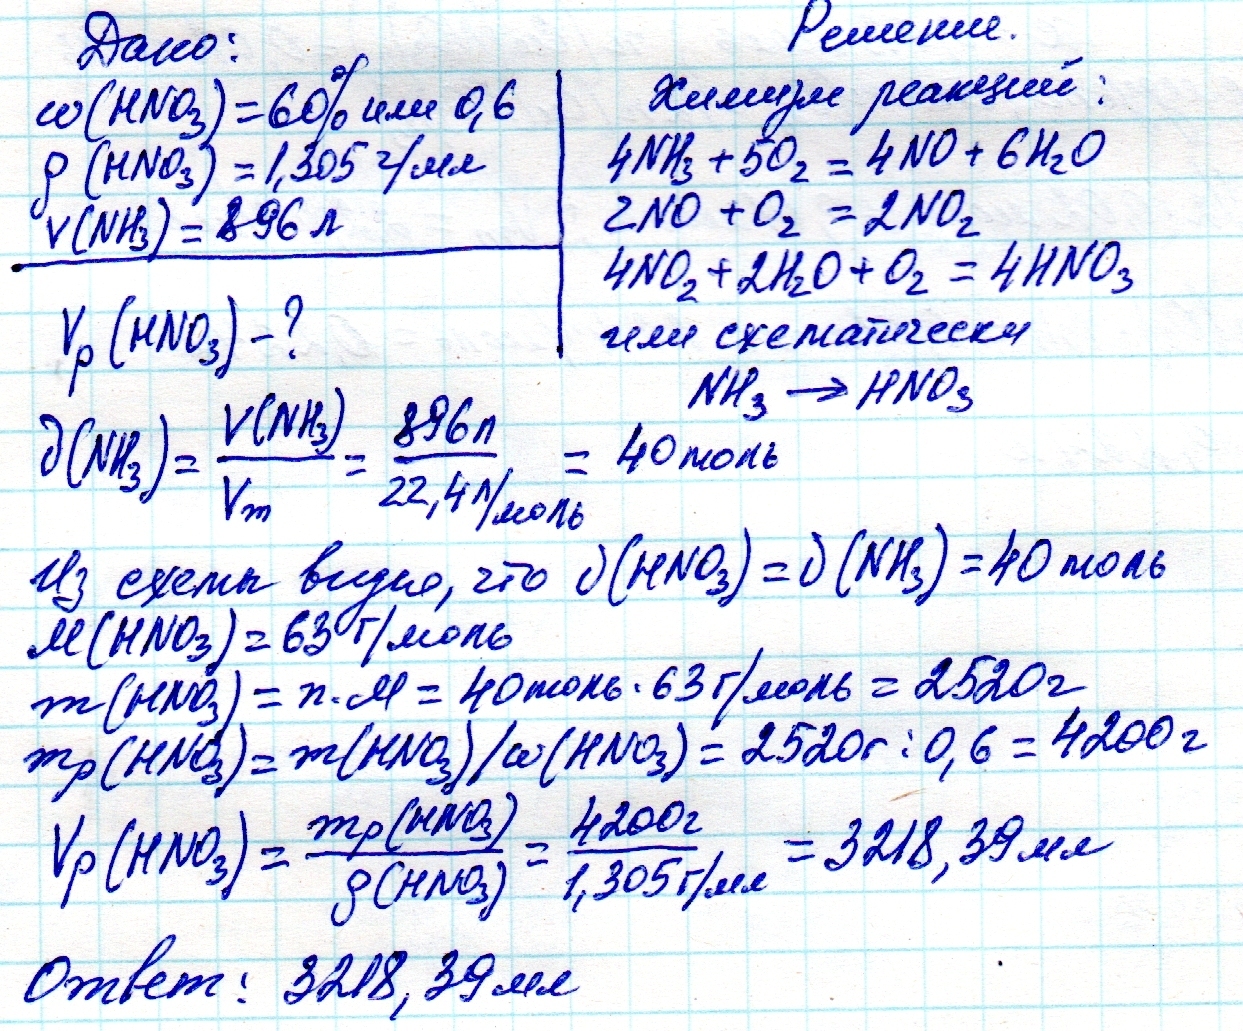 Дано:
ω(HNO₃) = 60% или 0,6
ρ(HNO₃) = 1,305 г/мл
V(NH₃) = 896 л
Vр(HNO₃) - ?
Решение.
Химизм реакций:
4NH₃ + 5O₂ = 4NO + 6H₂O
2NO + O₂ = 2NO₂
4NO₂ + 2H₂O + O₂ = 4HNO₃
или схематически
NH₃ → HNO₃
∂(NH₃) = V(NH₃)/Vm = 896л/22,4л/моль = 40 моль
Из схемы видно, что ∂(HNO₃) = ∂(NH₃) = 40 моль
M(HNO₃) = 63 г/моль
m(HNO₃) = n·M = 40моль·63г/моль = 2520г
mр(HNO₃) = m(HNO₃)/ω(HNO₃) = 2520г : 0,6 = 4200г
Vр(HNO₃) = mр(HNO₃)/ρ(HNO₃) = 4200г/1,305г/мл = 3218,39мл
Ответ: 3218,39мл